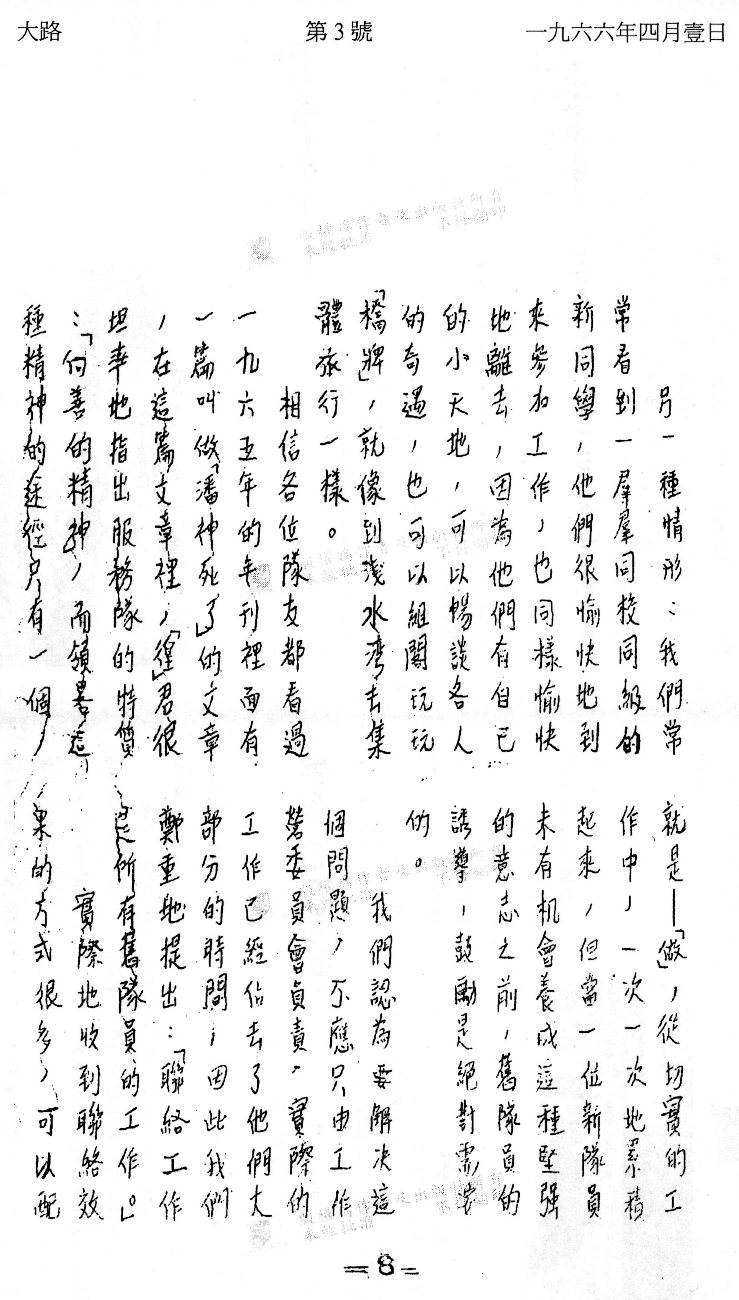 大路 第3號 一九六六年四月壹日
另一種情形：我們常
常看到一羣羣同校同級的
新同學，他們很愉快地到
來參加工作，也同樣愉快
地離去，因為他們有自已
的小天地，可以暢談各人
的奇遇，也可以組闊玩玩
「橋牌」，就像到淺水湾去集
體旅行一樣。
相信各位隊友都看過
一九六五年的年刊裡面有
一篇叫做「潘神死了」的文章
，在這篇文章裡，「徨」君很
坦率地指出服務隊的特價
：「向善的精神」，而領畧這
種精神的途經只有一個，
就是—「做」，從切實的工
作中，一次一次地累積
起來，但當一位新隊員
未有机會養成這種堅强
的意志之前，舊隊員的
誘導，鼓勵是絕對需要
的。
我們認為要解决這
個問題，不應只由工作
營委員會負責，實際的
工作已經佔去了他們大
部分的時間，因此我們
鄭重地提出：「聯絡工作
是所有舊隊員的工作。」
實際地收到聯絡效
果的方式很多，可以配
=8=